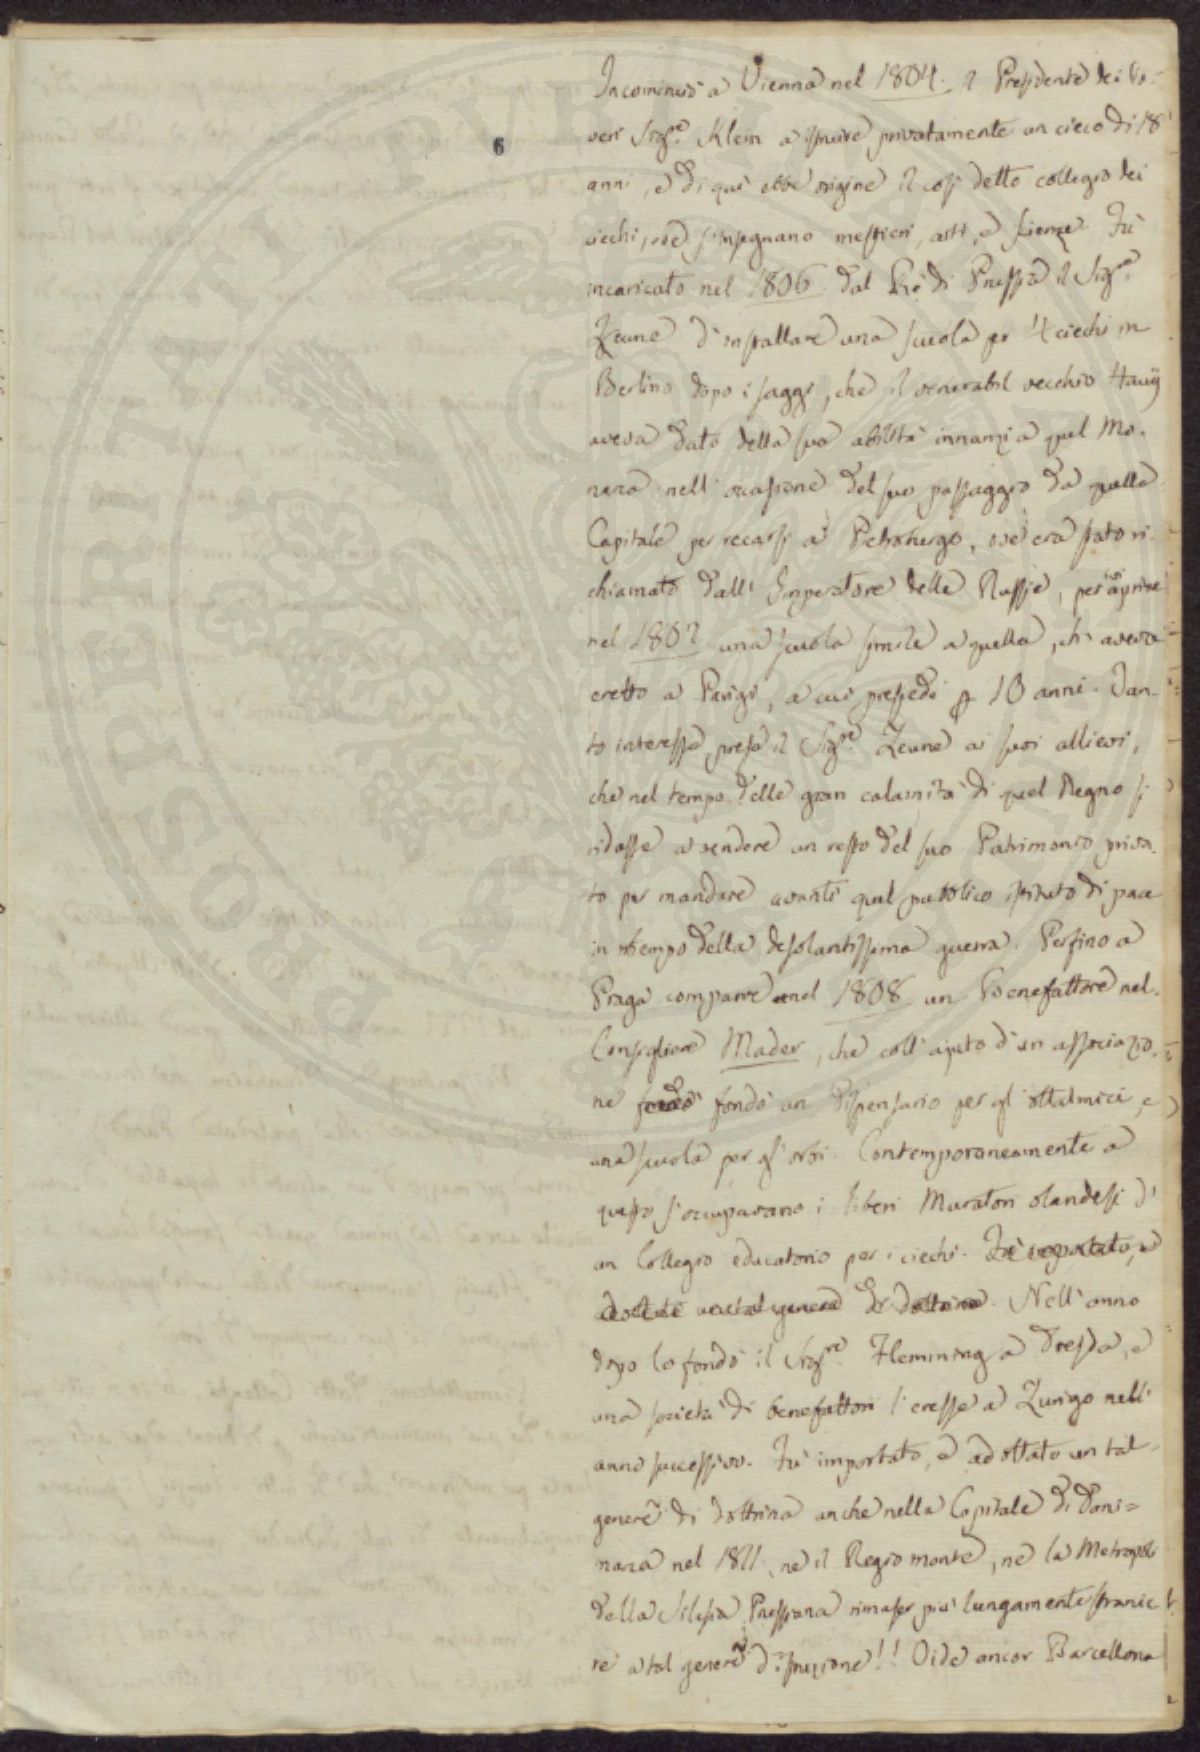 6
Incominciò a Vienna nel 1804. il Presidente dei Po-
veri Sigre. Klein a istruire privatamente un cieco di 18
anni, e di quì ebbe origine il così detto collegio dei
ciechi, ove s'insegnano mestieri, arti, e scienze. Fù
incaricato nel 1806 dal Rè di Prussia il Sigre.
Zeune d'installare una scuola per 4 ciechi in
Berlino dopo i saggi, che il venerabil vecchio Haüy
aveva dato della sua abilità innanzi a quel Mo-
narca nell'occasione del suo passaggio da quella
Capitale per recarsi a Petroburgo, ove era stato ri-
chiamato dall'Imperatore delle Russie, per ivi aprire
nel 1802 una scuola simile a quella, ch'aveva
eretto a Parigi, a cui presiedè per 10 anni. Tan-
to interesse prese il Sigre. Zeune ai suoi allievi,
che nel tempo delle gran calamità di quel Regno si
ridosse a vendere un resto del suo Patrimonio priva-
to per mandare avanti quel pubblico istituto di pace
in tempo della desolantissima guerra. Perfino a
Praga comparve nel 1808 un Benefattore nel
Consigliere Mader, che coll'ajuto d'un associazio-
ne fondò un dispensario per gl'ottalmici, e
una scuola per gl'orbi. Contemporaneamente a
questo s'occupavano i liberi Muratori olandesi d'
un Collegio educatorio per i ciechi. Fù importato, e
adottato un tal genere di dottrina. Nell'anno
dopo lo fondò il Sigre. Flemming a Dresda, e
una società di benefattori l'eresse a Zurigo nell'
anno successivo. Fù importato, e adottato un tal
genere di dottrina anche nella Capitale di Dani=
marca nel 1811, nè il Regiomonte, nè la Metropoli
della Silesia Prussiana rimaser più lungamente stranie
re a tal genere d'istruzione!! Vide ancor Barcellona
PROSPERITATI PUBLICAE